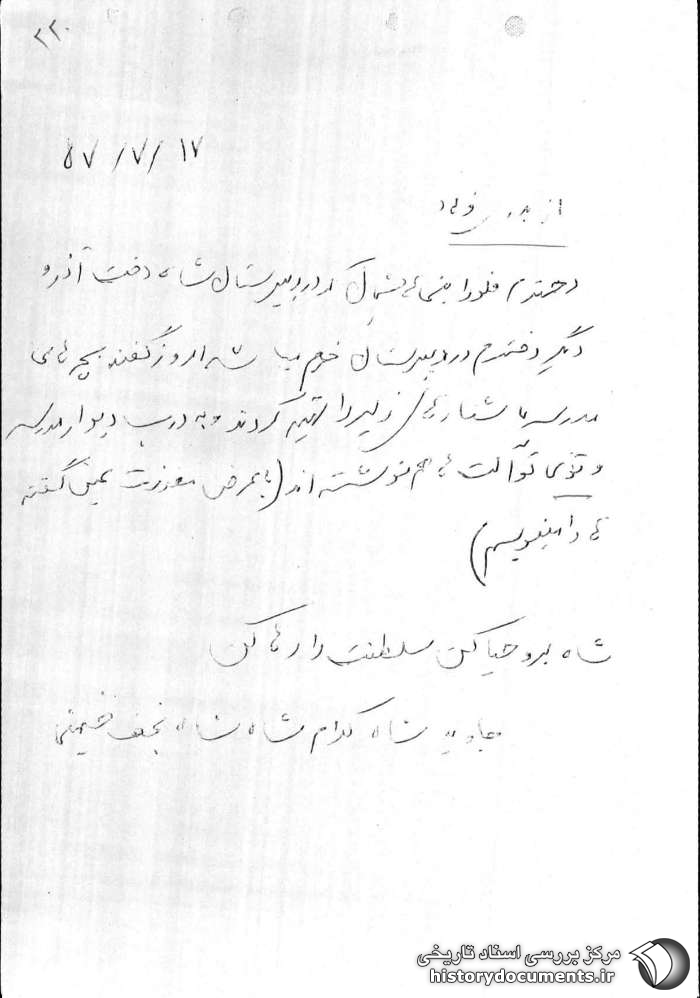 ۲۲۰
۵۷/۷/۱۷
از
دخترم فلورا که در دبیرستان شاه دخت آذر و
دیگر دخترم در دبیرستان خرم میباشد امروز گفتند بچه های
مدرسه ما شعارهای زیر را تهیه کردند و به درب دیوار مدرسه
و توی توآلت ها هم نوشته اند (با عرض معذرت عین گفته
ها را مینویسم)
شاه برو حیا کن سلطنت را رها کن
جاوید شاه کدام شاه شاه نجف خمینی
مرکز بررسی اسناد تاریخی
historydocuments.ir